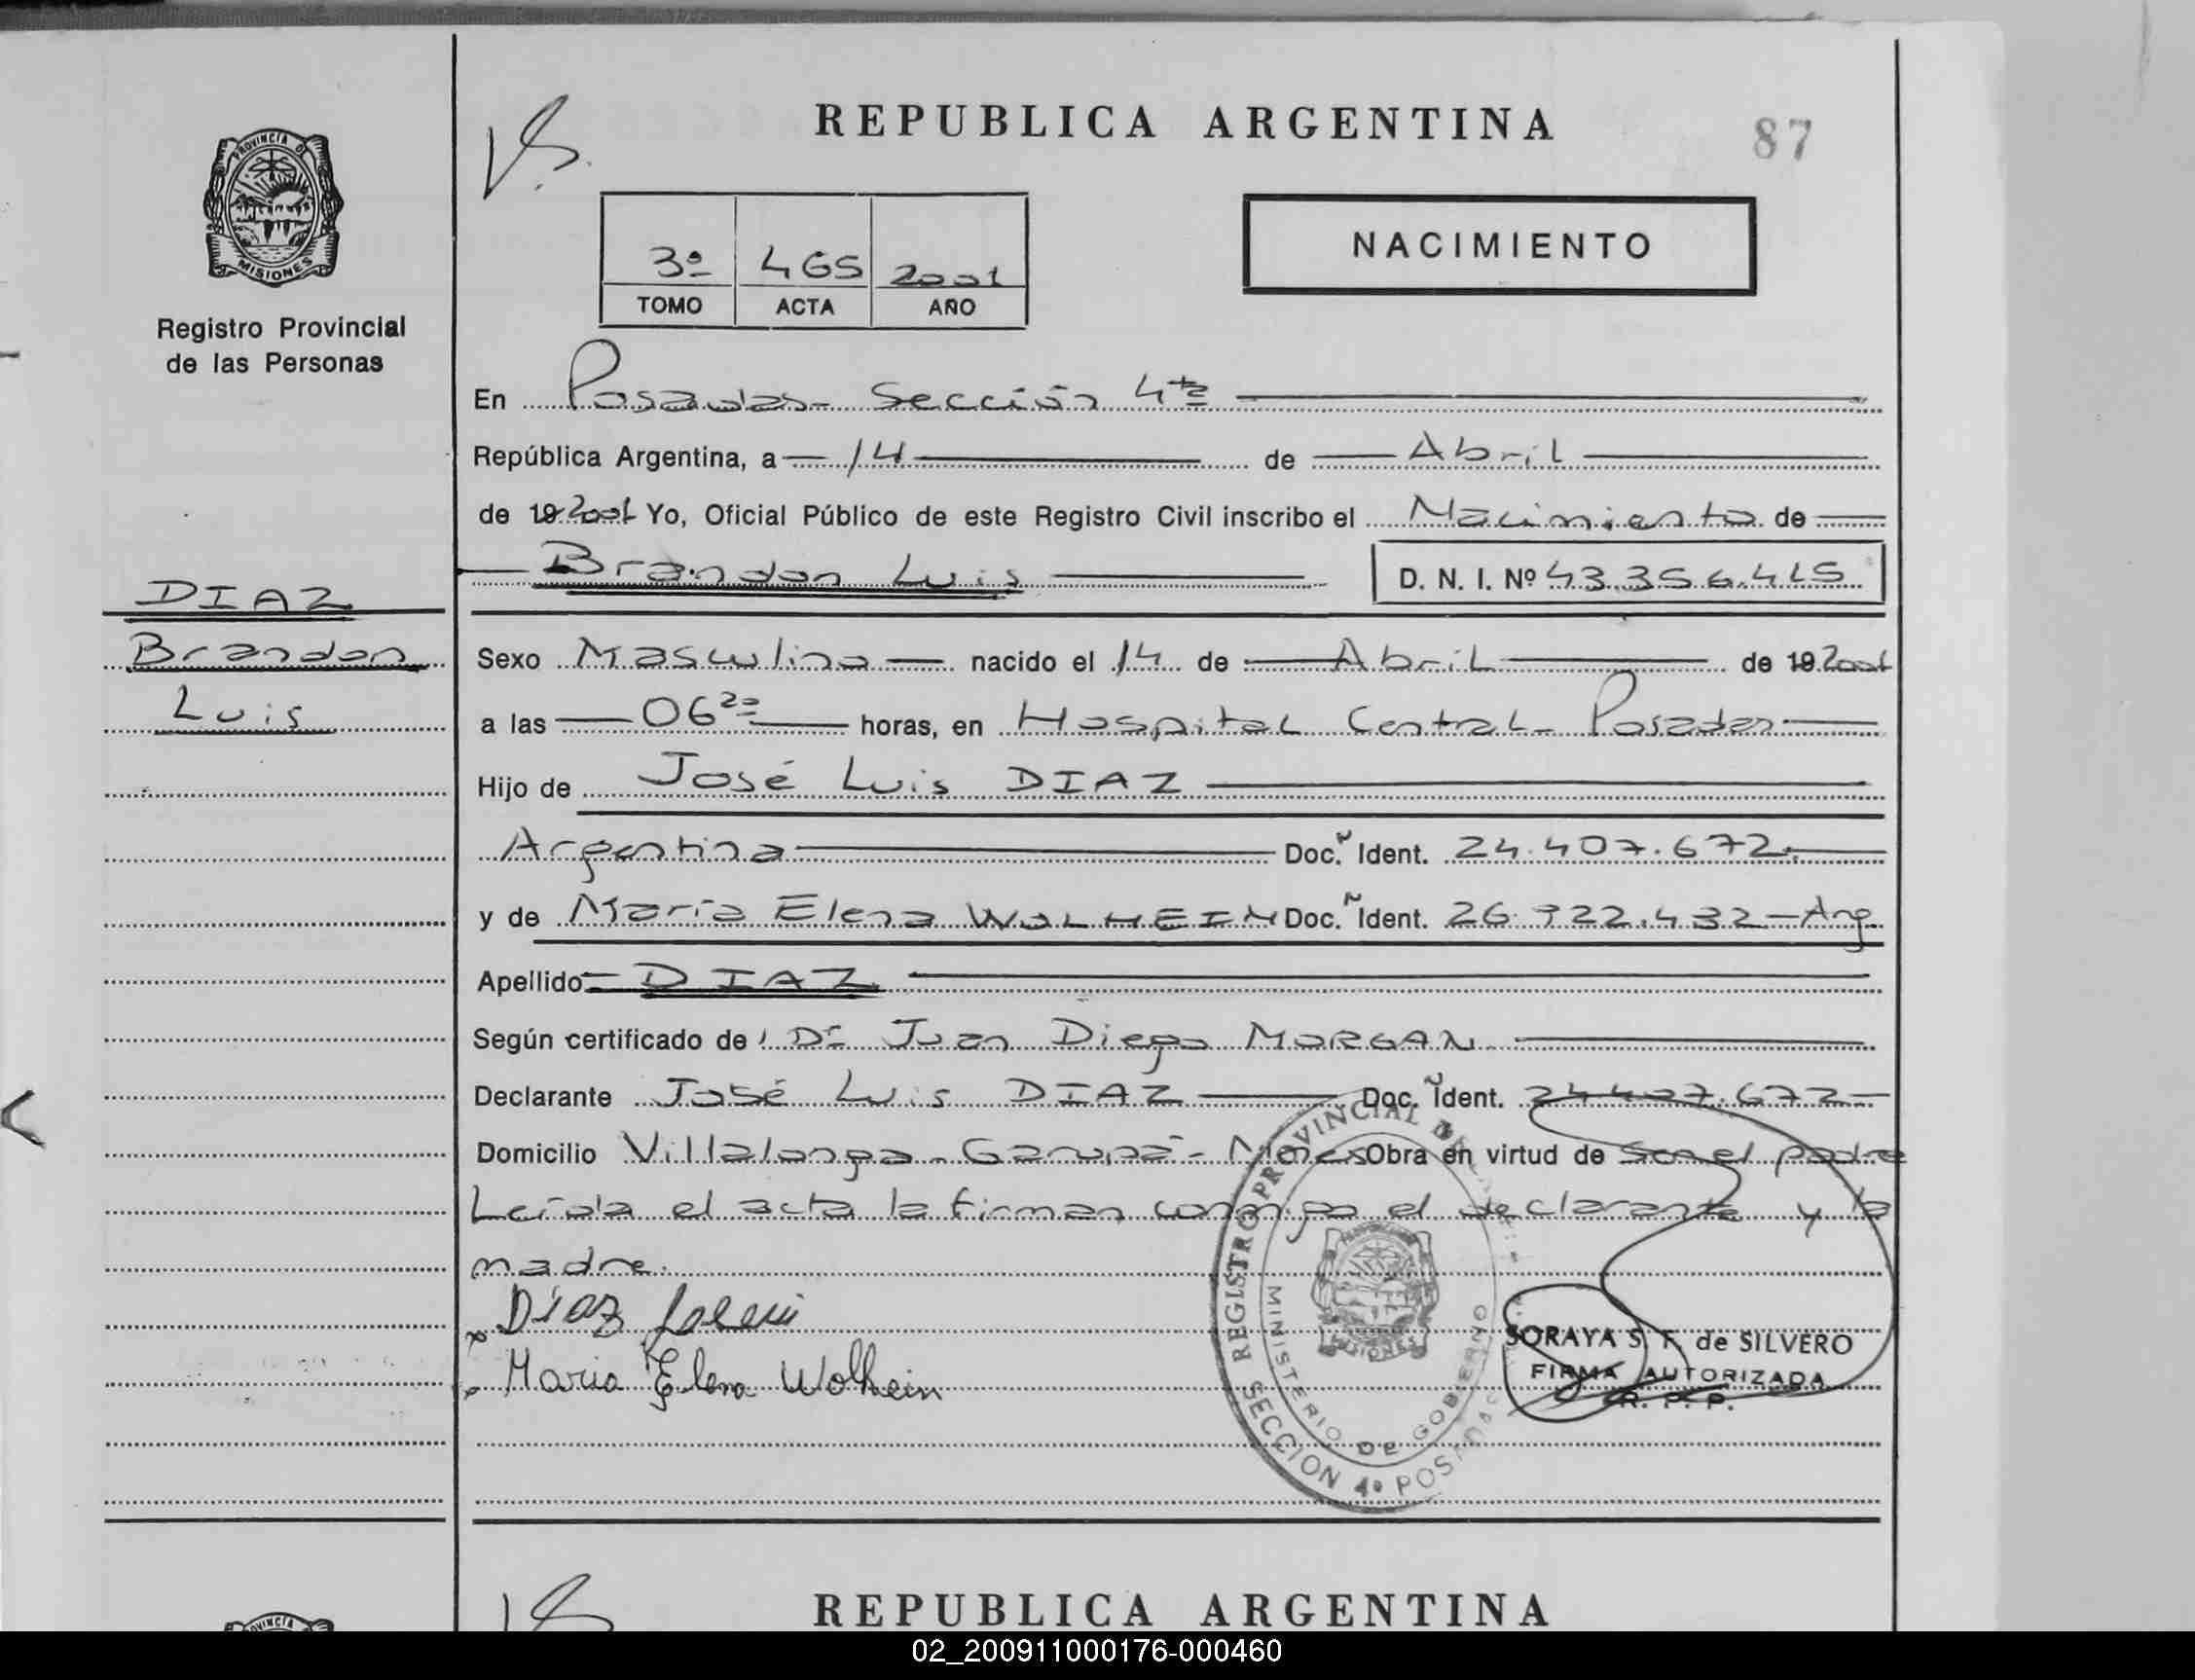 REPUBLICA ARGENTINA
87
PROVINCIA DE MISIONES
Registro Provincial
de las Personas
3º 465 2001
TOMO ACTA AÑO
NACIMIENTO
En Posadas- Sección 4ta
República Argentina, a 14 de Abril
de 19 2001 Yo, Oficial Público de este Registro Civil inscribo el Nacimiento de
Brandon Luis D. N. I. Nº 43.356.415
DIAZ
Brandon
Luis
Sexo Masculino nacido el 14 de Abril de 19 2001
a las 06 20 horas, en Hospital Central- Posadas
Hijo de José Luis DIAZ
Argentina Doc. Ident. 24.407.672.
y de María Elena WOLHEIN Doc. Ident. 26.722.432-Arg.
Apellido DIAZ
Según certificado de Dr Juan Diego MORGAN
Declarante José Luis DIAZ Doc. Ident. 24.407.672-
Domicilio Villalonga - Garupá - Mnes Obra en virtud de ser el padre
Leída el acta la firman conmigo el declarante y la
madre.
Diaz
Maria Elena Wolhein
REGISTRO PROVINCIAL DE
MINISTERIO DE GOBIERNO
SECCION 4ª POSADAS
SORAYA S. T. de SILVERO
FIRMA AUTORIZADA
R. P. P.
REPUBLICA ARGENTINA
02_200911000176-000460